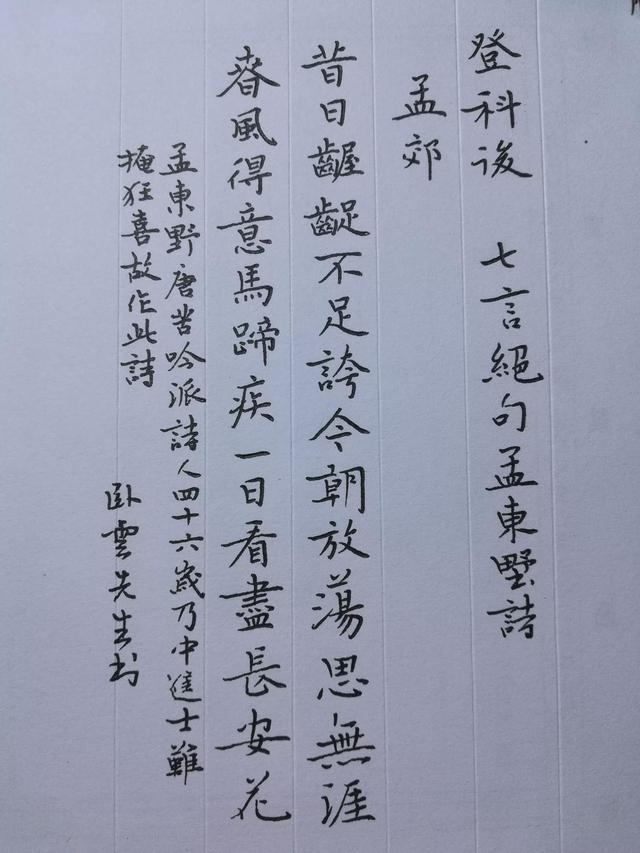 登科後 七言絕句孟東墅詩
孟郊
昔日齷齪不足誇今朝放蕩思無涯
春風得意馬蹄疾一日看盡長安花
孟東野唐苦吟派詩人四十六歲乃中進士難
掩狂喜故作此詩
臥雲先生书